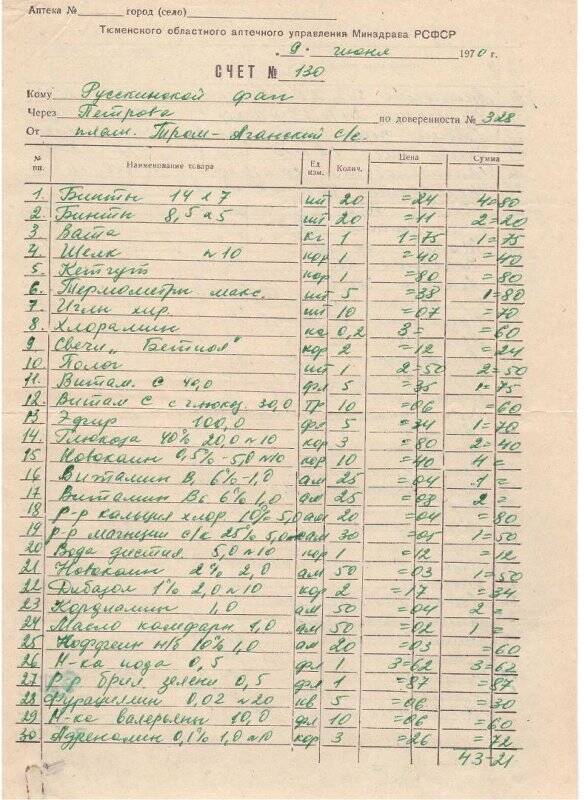 Аптека № город (село)
Тюменского областного аптечного управления Минздрава РСФСР
„9" июня 1970 г.
СЧЕТ № 130
Кому Русскинской фап
Через Петрова по доверенности № 328
От плат. Тром-Аганский с/с.
№ пп. Наименование товара Ед. изм. Колич. Цена Сумма
1. Бинты 14 х 7 шт 20 =24 4=80
2. Бинты 8,5 х 5 шт 20 =11 2=20
3 Вата кг 1 1=75 1=75
4. Шелк №10 кор 1 =40 =40
5. Кетгут кор 1 =80 =80
6. Термометры макс. шт 5 =38 1=80
7. Иглы хир. шт 10 =07 =70
8. Хлорамин кг 0,2 3= =60
9 Свечи „Бетиол" кор 2 =12 =24
10. Полог шт 1 2=50 2=50
11. Витам. С 40,0 фл 5 =35 1=75
12. Витам С с глюкоз. 30,0 пр 10 =06 =60
13 Эфир 100,0 фл 5 =34 1=70
14. Глюкоза 40% 20,0 №10 кор 3 =80 2=40
15 Новокаин 0,5% -5,0 №10 кор 10 =40 4=
16 Витамин В, 6% -1,0 ам 25 =04 1=
17 Витамин В6 6% 1,0 ам 25 =08 2=
18 Р-р кальция хлор 10% 5,0 ам 20 =04 =80
19 Р-р магнезии с/к 25% 5,0 ам 30 =05 1=50
20 Вода дистил. 5,0 №10 кор 1 =12 =12
21 Новокаин 2% 2,0 ам 50 =03 1=50
22 Дибазол 1% 2,0 №10 кор 2 =17 =34
23 Кордиамин 1,0 ам 50 =04 2=
24 Масло камфарн 1,0 ам 50 =02 1=
25 Коффеин н/б 10% 1,0 ам 20 =03 =60
26 Н-ка иода 0,5 фл 1 3=62 3=62
27 Р-р брил зелени 0,5 фл 1 =87 =87
28 Фурациллин 0,02 №20 кв 5 =06 =30
29 Н-ка валерьяны 10,0 фл 10 =06 =60
30 Адреналин 0,1% 1,0 №10 кор 3 =26 =72
43-21